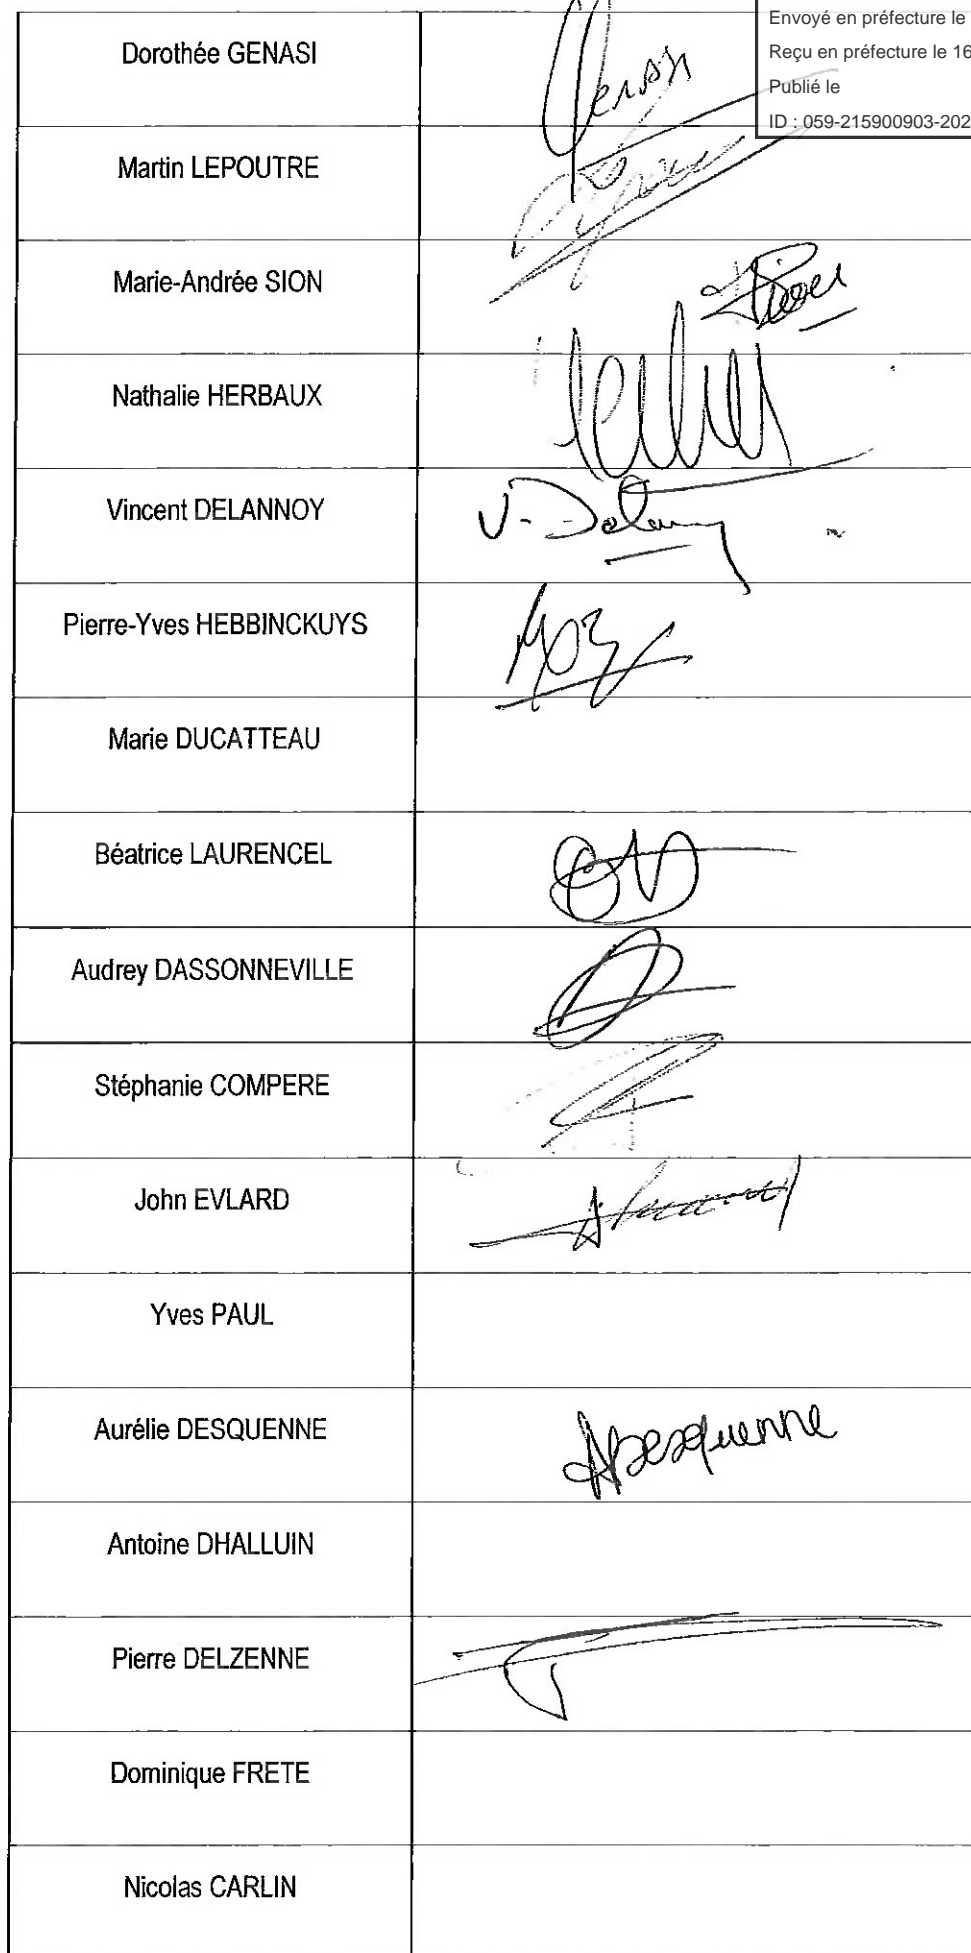 Envoyé en préfecture le
Reçu en préfecture le 16
Publié le
ID : 059-215900903-202
Dorothée GENASI
Genasi
Martin LEPOUTRE
Marie-Andrée SION
Sion
Nathalie HERBAUX
Vincent DELANNOY
Pierre-Yves HEBBINCKUYS
Marie DUCATTEAU
Béatrice LAURENCEL
Audrey DASSONNEVILLE
Stéphanie COMPERE
John EVLARD
Yves PAUL
Aurélie DESQUENNE
ADesquenne
Antoine DHALLUIN
Pierre DELZENNE
Dominique FRETE
Nicolas CARLIN